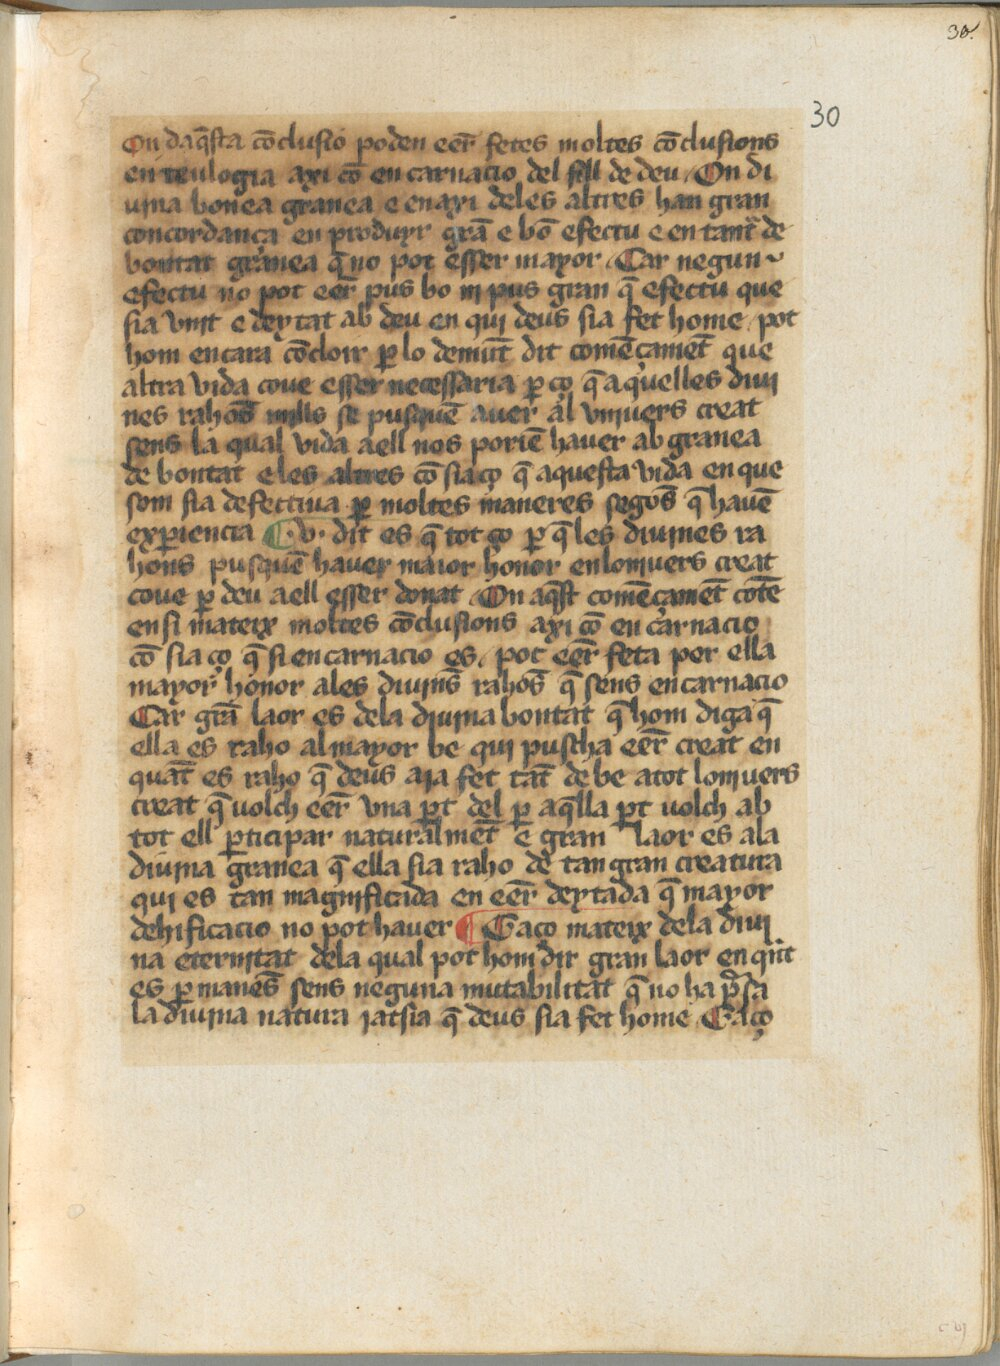 30.
30
On daq̄sta cōclusio poden eēr fetes moltes cōclusions
en teulogia axi cō encarnacio del fill de deu On di
uina bonea granea e enaxi deles altres han gran
concordança en produyr grā e bō efectu e en tant de
bontat granea q̄ no pot esser mayor Car negun
efectu no pot eēr pus bo ni pus gran q̄ efectu que
sia vnit e deytat ab deu en qui deus sia fet home pot
hom encara cōcloir ꝑ lo demūt dit comēçamēt que
altra vida coue esser necessaria ꝑ ço q̄ aquelles diui
nes rahōs mills se pusquē auer al vniuers creat
sens la qual vida a ell nos poriē hauer ab granea
de bontat e les altres cō sia ço q̄ aquesta vida en que
som sia defectiua ꝑ moltes maneres segōs q̄ hauē
exꝑiencia ¶ .v. dit es q̄ tot ço ꝑ q̄ les diuines ra
hons pusquē hauer maior honor en lonivers creat
coue ꝑ deu a ell esser donat On aq̄st comēçamēt cōtē
en si mateix moltes cōclusions axi cō encarnacio
cō sia ço q̄ si encarnacio es pot eēr feta per ella
mayor honor ales diuinēs rahōs q̄ sens encarnacio
Car grā laor es dela diuina bontat q̄ hom diga q̄
ella es raho al mayor be qui puscha eēr creat en
quāt es raho q̄ deus aia fet tāt de be a tot loniuers
creat q̄ volch eēr vna ꝑt del ꝑ aq̄lla ꝑt volch ab
tot ell ꝑticipar naturalmēt e gran laor es ala
diuina granea q̄ ella sia raho de tan gran creatura
qui es tan magnificada en eēr deytada q̄ mayor
dehificacio no pot hauer ¶ Eaço mateix dela diui
na eternitat dela qual pot hom dir gran laor en qūt
es ꝑmanēs sens neguna mutabilitat q̄ no ha p̄sa
la diuina natura iatsia q̄ deus sia fet home Eaço